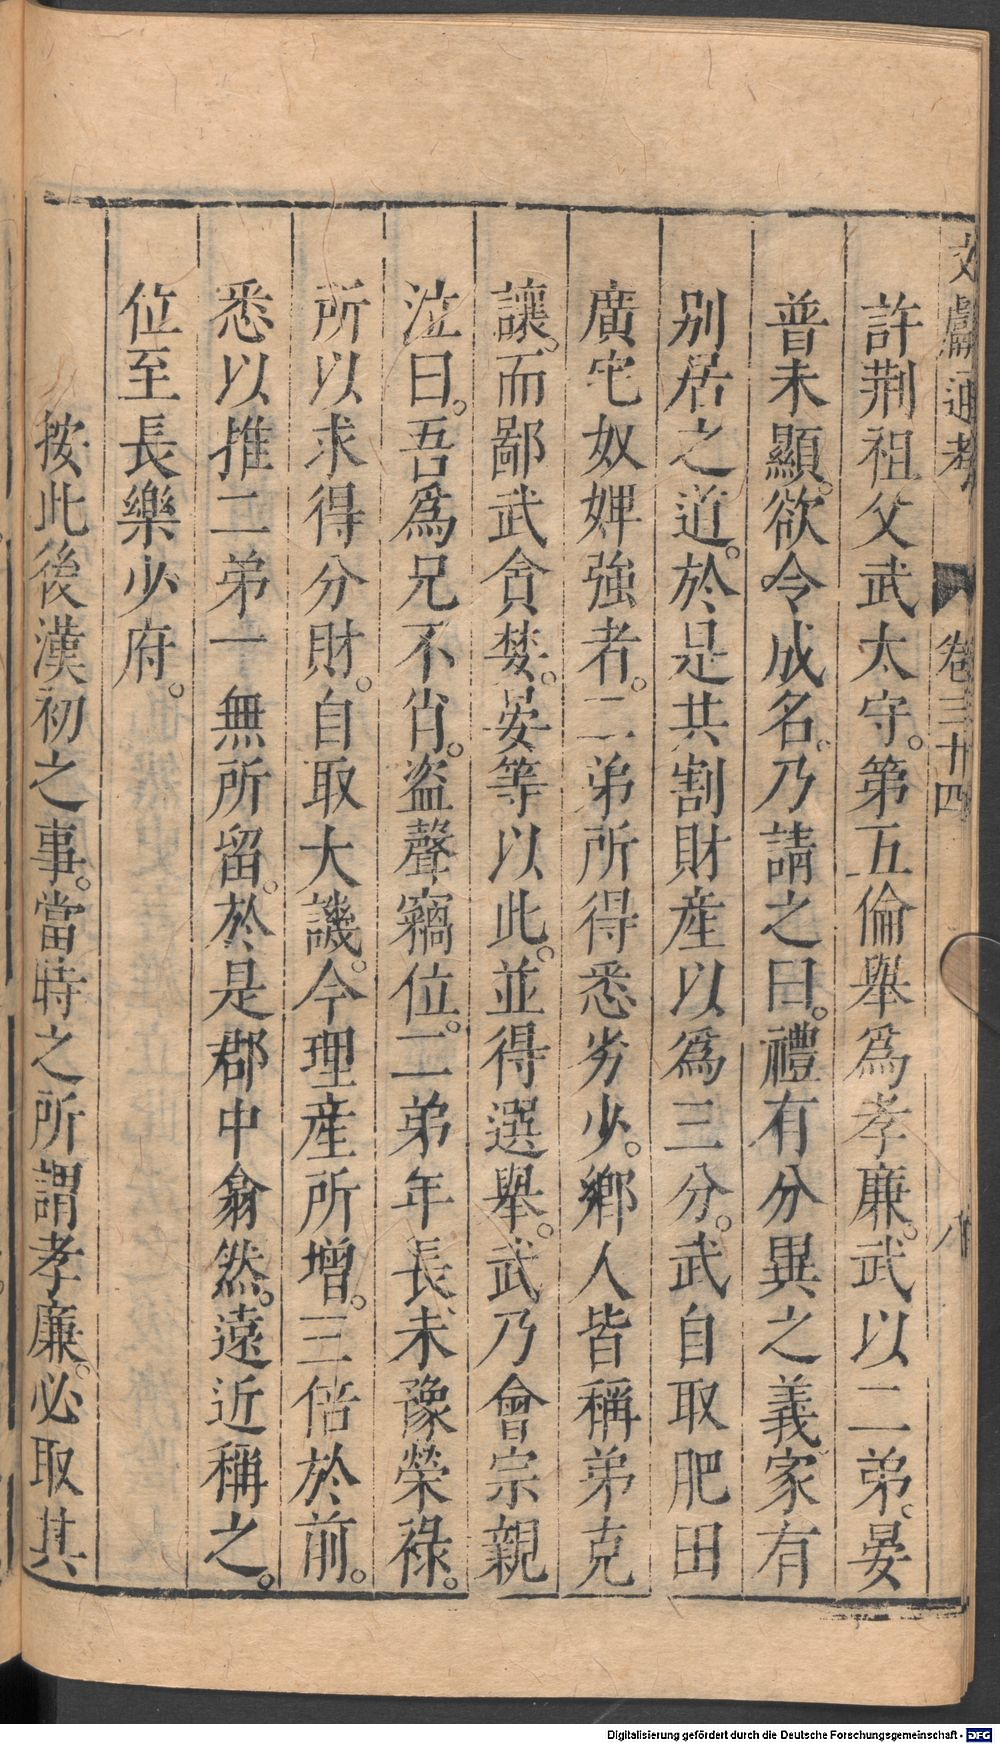 文獻通考 卷三十四 八
許荆祖父武太守。第五倫舉爲孝廉。武以二弟。晏
普未顯。欲令成名。乃請之曰。禮有分異之義家有
别居之道。於是共割財産以爲三分。武自取肥田
廣宅奴婢強者。二弟所得悉劣少。鄉人皆稱弟克
讓。而鄙武貪婪。晏等以此。並得選舉。武乃會宗親
泣曰。吾爲兄不肖。盗聲竊位。二弟年長未豫榮祿。
所以求得分財。自取大譏。今理産所增。三倍於前。
悉以推二弟一無所留。於是郡中翕然。遠近稱之。
位至長樂少府。
按此後漢初之事。當時之所謂孝廉。必取其
Digitalisierung gefördert durch die Deutsche Forschungsgemeinschaft - DFG